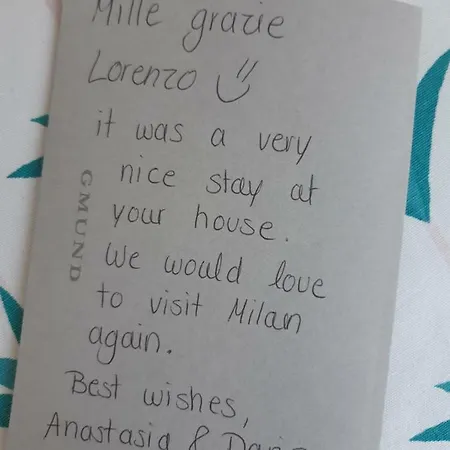 Mille grazie
Lorenzo
it was a very
nice stay at
your house.
GMUND
We would love
to visit Milan
again.
Best wishes,
Anastasia &